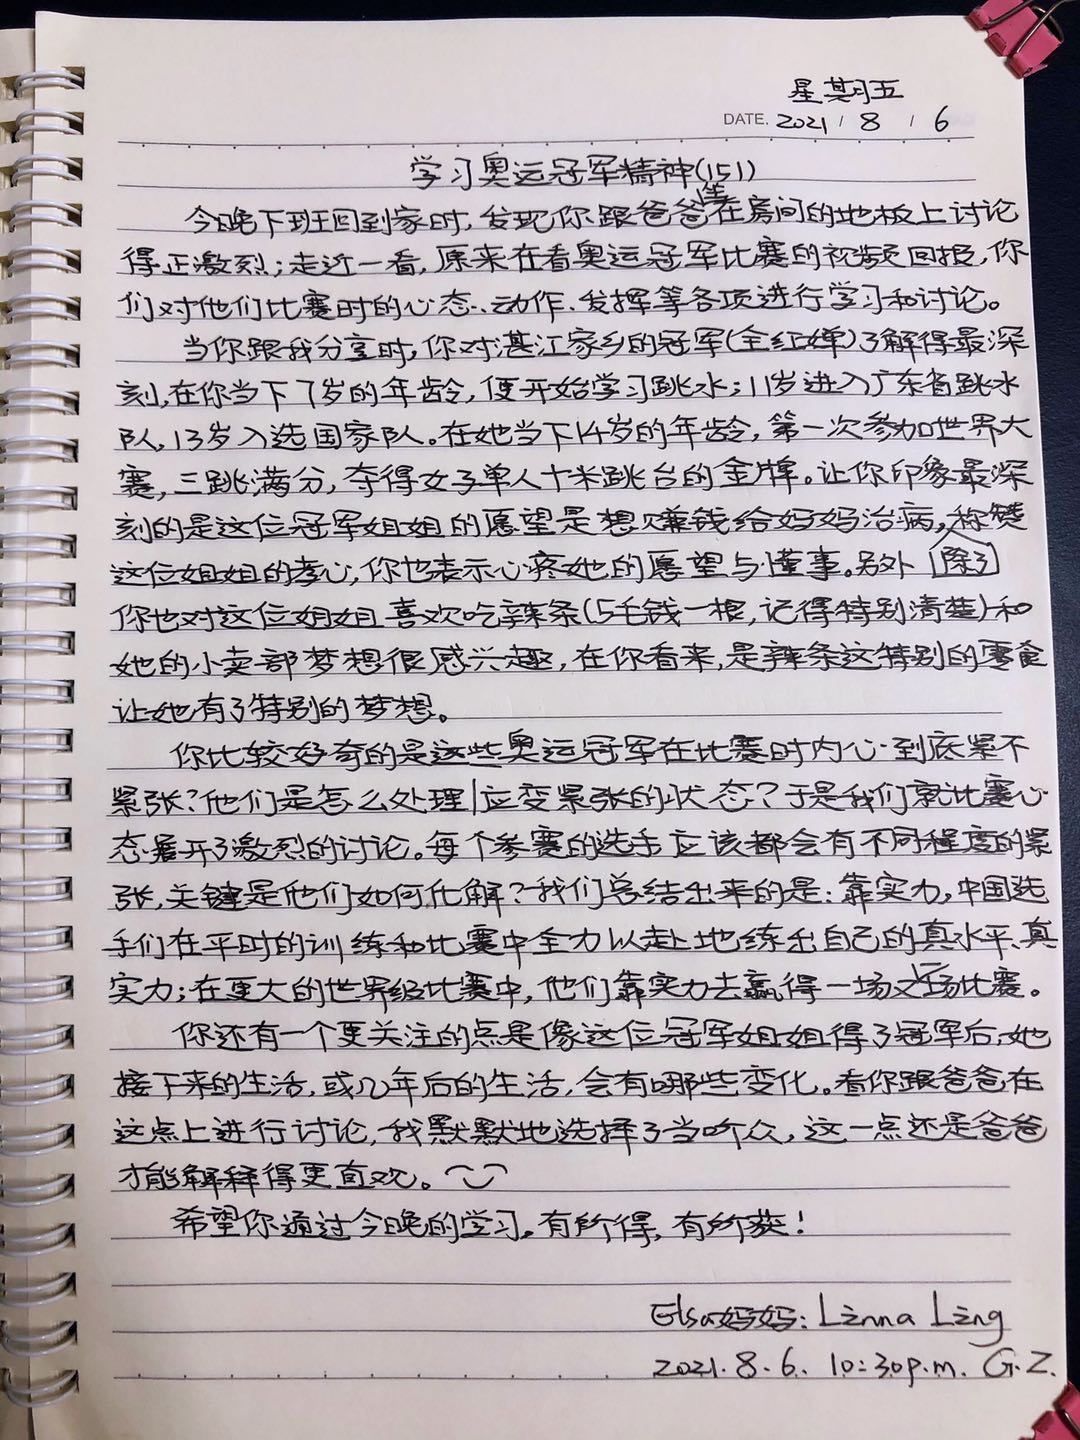 星期五
DATE. 2021 / 8 / 6
学习奥运冠军精神(151)
今晚下班回到家时,发现你跟爸爸在房间的地板上讨论
得正激烈;走近一看,原来在看奥运冠军比赛的视频回报,你
们对他们比赛时的心态、动作、发挥等各项进行学习和讨论。
当你跟我分享时,你对湛江家乡的冠军(全红婵)了解得最深
刻,在你当下7岁的年龄,便开始学习跳水;11岁进入广东省跳水
队,13岁入选国家队。在她当下14岁的年龄,第一次参加世界大
赛,三跳满分,夺得女子单人十米跳台的金牌。让你印象最深
刻的是这位冠军姐姐的愿望是想赚钱给妈妈治病,称赞
这位姐姐的孝心,你也表示心疼她的愿望与懂事。另外除了
你也对这位姐姐喜欢吃辣条(5毛钱一根,记得特别清楚)和
她的小卖部梦想很感兴趣,在你看来,是辣条这特别的零食
让她有了特别的梦想。
你比较好奇的是这些奥运冠军在比赛时内心到底紧不
紧张?他们是怎么处理/应变紧张的状态?于是我们就比赛心
态展开了激烈的讨论。每个参赛的选手应该都会有不同程度的紧
张,关键是他们如何化解?我们总结出来的是:靠实力,中国选
手们在平时的训练和比赛中全力以赴地练出自己的真水平、真
实力;在更大的世界级比赛中,他们靠实力去赢得一场又一场比赛。
你还有一个更关注的点是像这位冠军姐姐得了冠军后,她
接下来的生活,或几年后的生活,会有哪些变化。看你跟爸爸在
这点上进行讨论,我默默地选择了当听众,这一点还是爸爸
才能解释得更直观。
希望你通过今晚的学习,有所得,有所获!
Elsa妈妈: Linna Ling
2021.8.6. 10:30p.m. G.Z.